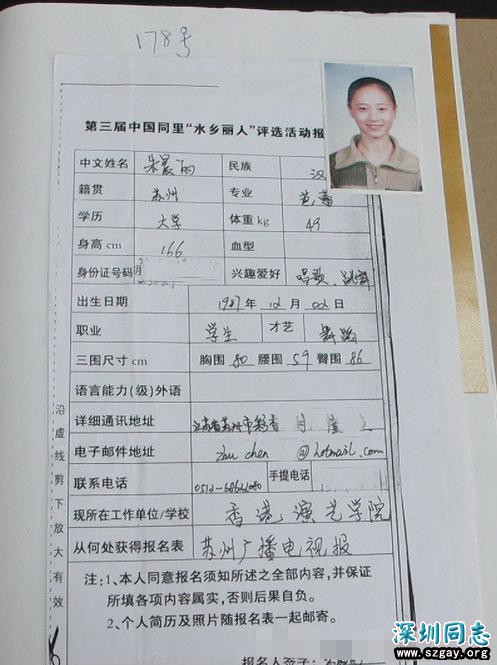 178号
第三届中国同里“水乡丽人”评选活动报
中文姓名 朱晨丽 民族 汉
籍贯 苏州 专业 芭蕾
学历 大学 体重 kg 49
身高 cm 166 血型
身份证号码 兴趣爱好 唱歌、跳舞
出生日期 1987年12月02日
职业 学生 才艺 舞蹈
三围尺寸 cm 胸围 80 腰围 59 臀围 86
语言能力(级)外语
详细通讯地址 江苏省苏州市
电子邮件地址 zhu chen @hotmail.com
联系电话 手提电话
现所在工作单位/学校 香港演艺学院
从何处获得报名表 苏州广播电视报
注:1、本人同意报名须知所述之全部内容,并保证
所填各项内容属实,否则后果自负。
2、个人简历及照片随报名表一起邮寄。
报名人签字:
沿虚线剪下放大有效
深圳同志
www.szgay.org